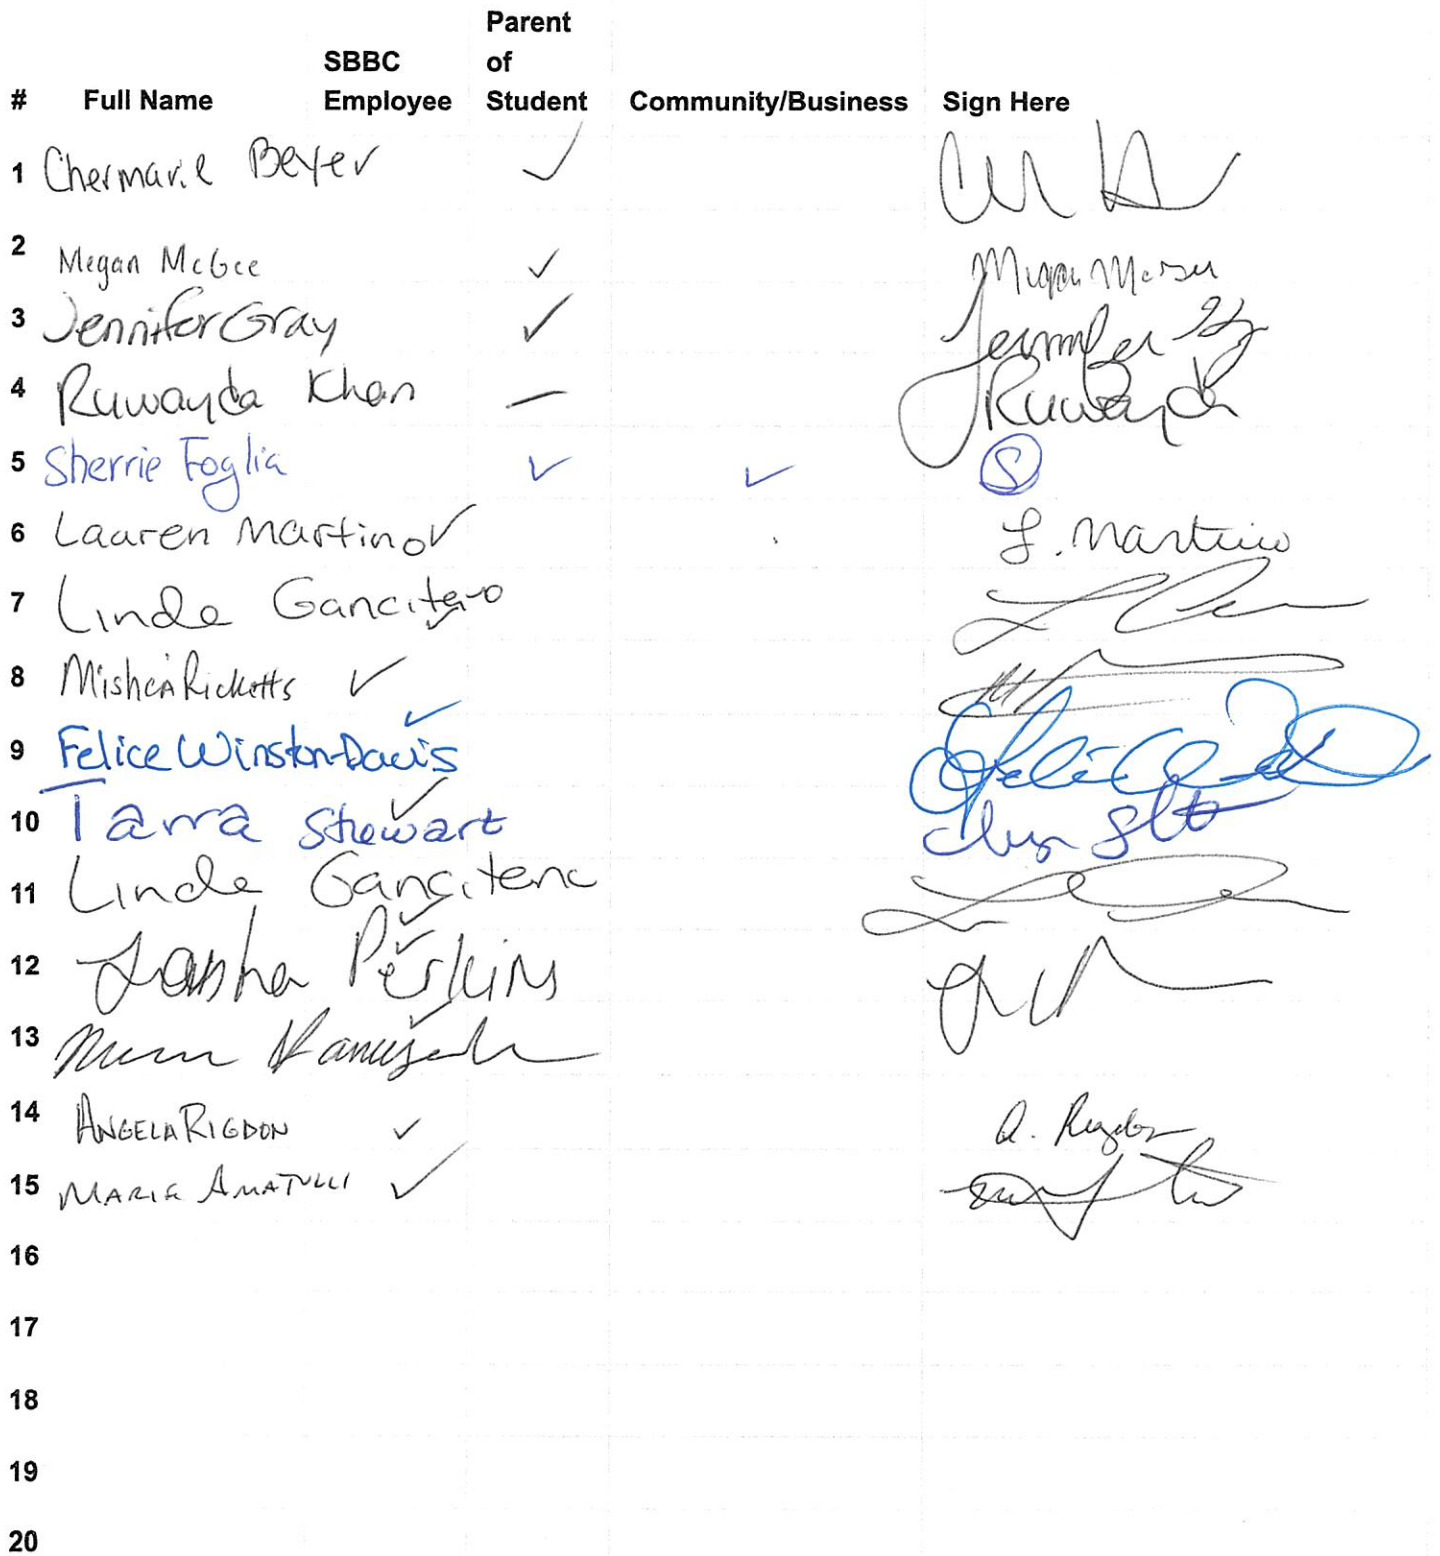 Parent
SBBC of
# Full Name Employee Student Community/Business Sign Here
1 Chermarie Beyer ✓
2 Megan McGee ✓ Megan McGee
3 Jennifer Gray ✓ Jennifer
4 Ruwayda Khan — Ruwayda
5 Sherrie Foglia ✓ ✓ S
6 Lauren Martino ✓ L. Martino
7 Linda Gancitano ✓
8 Mishca Ricketts ✓
9 Felice Winston-Davis ✓
10 Tarra Stewart ✓
11 Linda Gancitano ✓
12 Perkins ✓
13 ✓
14 ANGELA RIGDON ✓ A. Rigdon
15 MARIA AMATULLI ✓
16
17
18
19
20